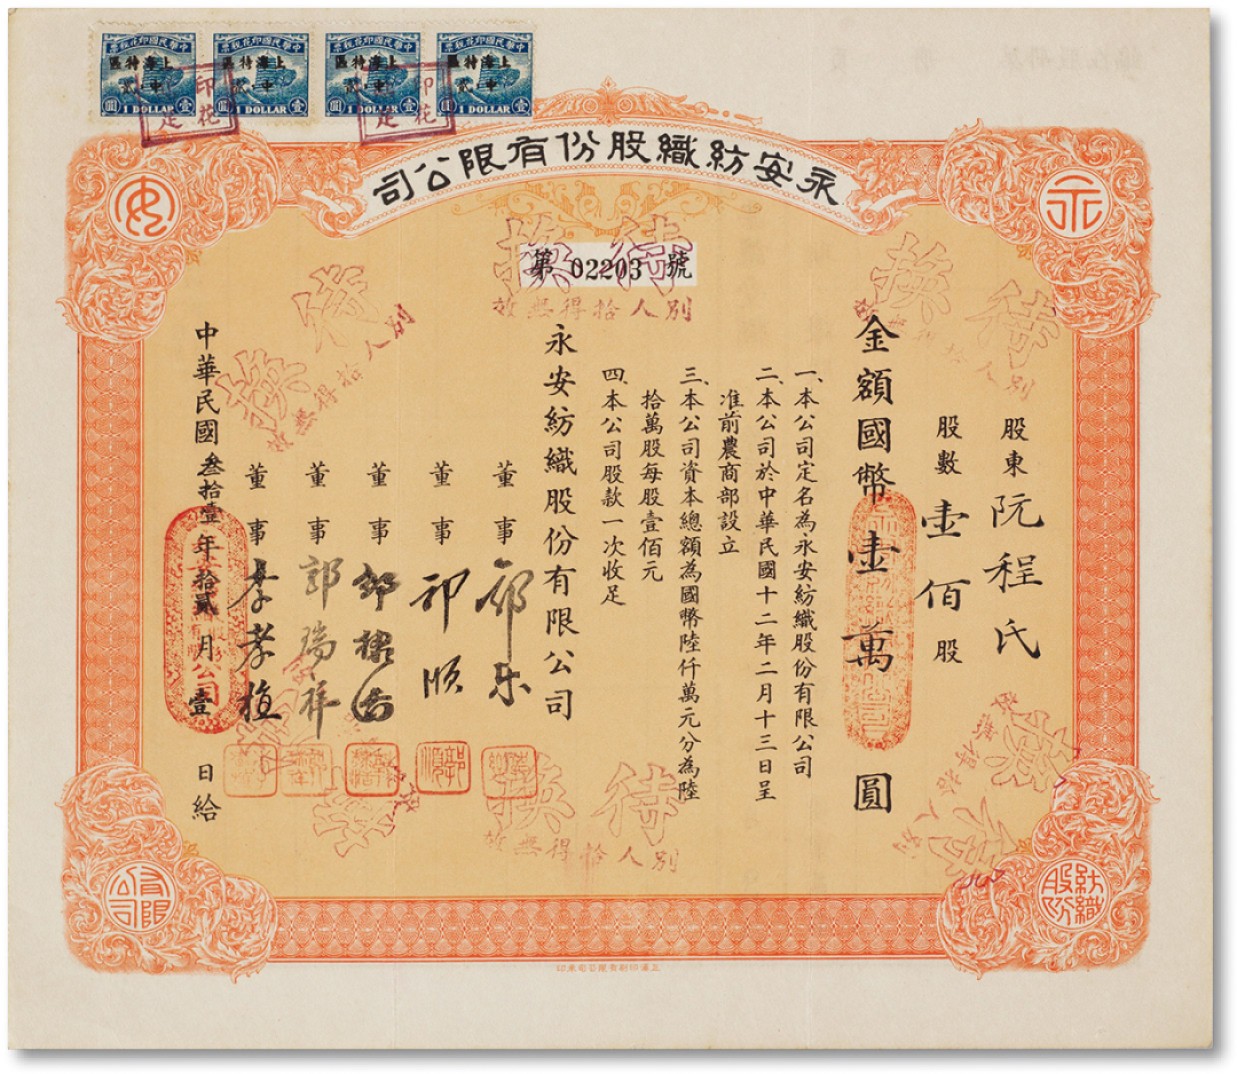 中華民國印花稅票 中華民國印花稅票 中華民國印花稅票 中華民國印花稅票
上海特區 上海特區 上海特區 上海特區
壹 1 DOLLAR 圓 壹 1 DOLLAR 圓 壹 1 DOLLAR 圓 壹 1 DOLLAR 圓
印花
印花
永安紡織股份有限公司
永
安
第 02203 號
待換
別人拾得無效
待換
別人拾得無效
待換
別人拾得無效
股東 阮程氏
股數 壹佰股
金額國幣壹萬圓
一、本公司定名為永安紡織股份有限公司
二、本公司於中華民國十二年二月十三日呈
准前農商部設立
三、本公司資本總額為國幣陸仟萬元分為陸
拾萬股每股壹佰元
四、本公司股款一次收足
永安紡織股份有限公司
董事 郭樂
董事 郭順
董事
董事 郭瑞祥
董事 李孝植
中華民國叁拾壹年拾貳月壹日給
待換
別人拾得無效
待換
別人拾得無效
紡織股份
有限公司